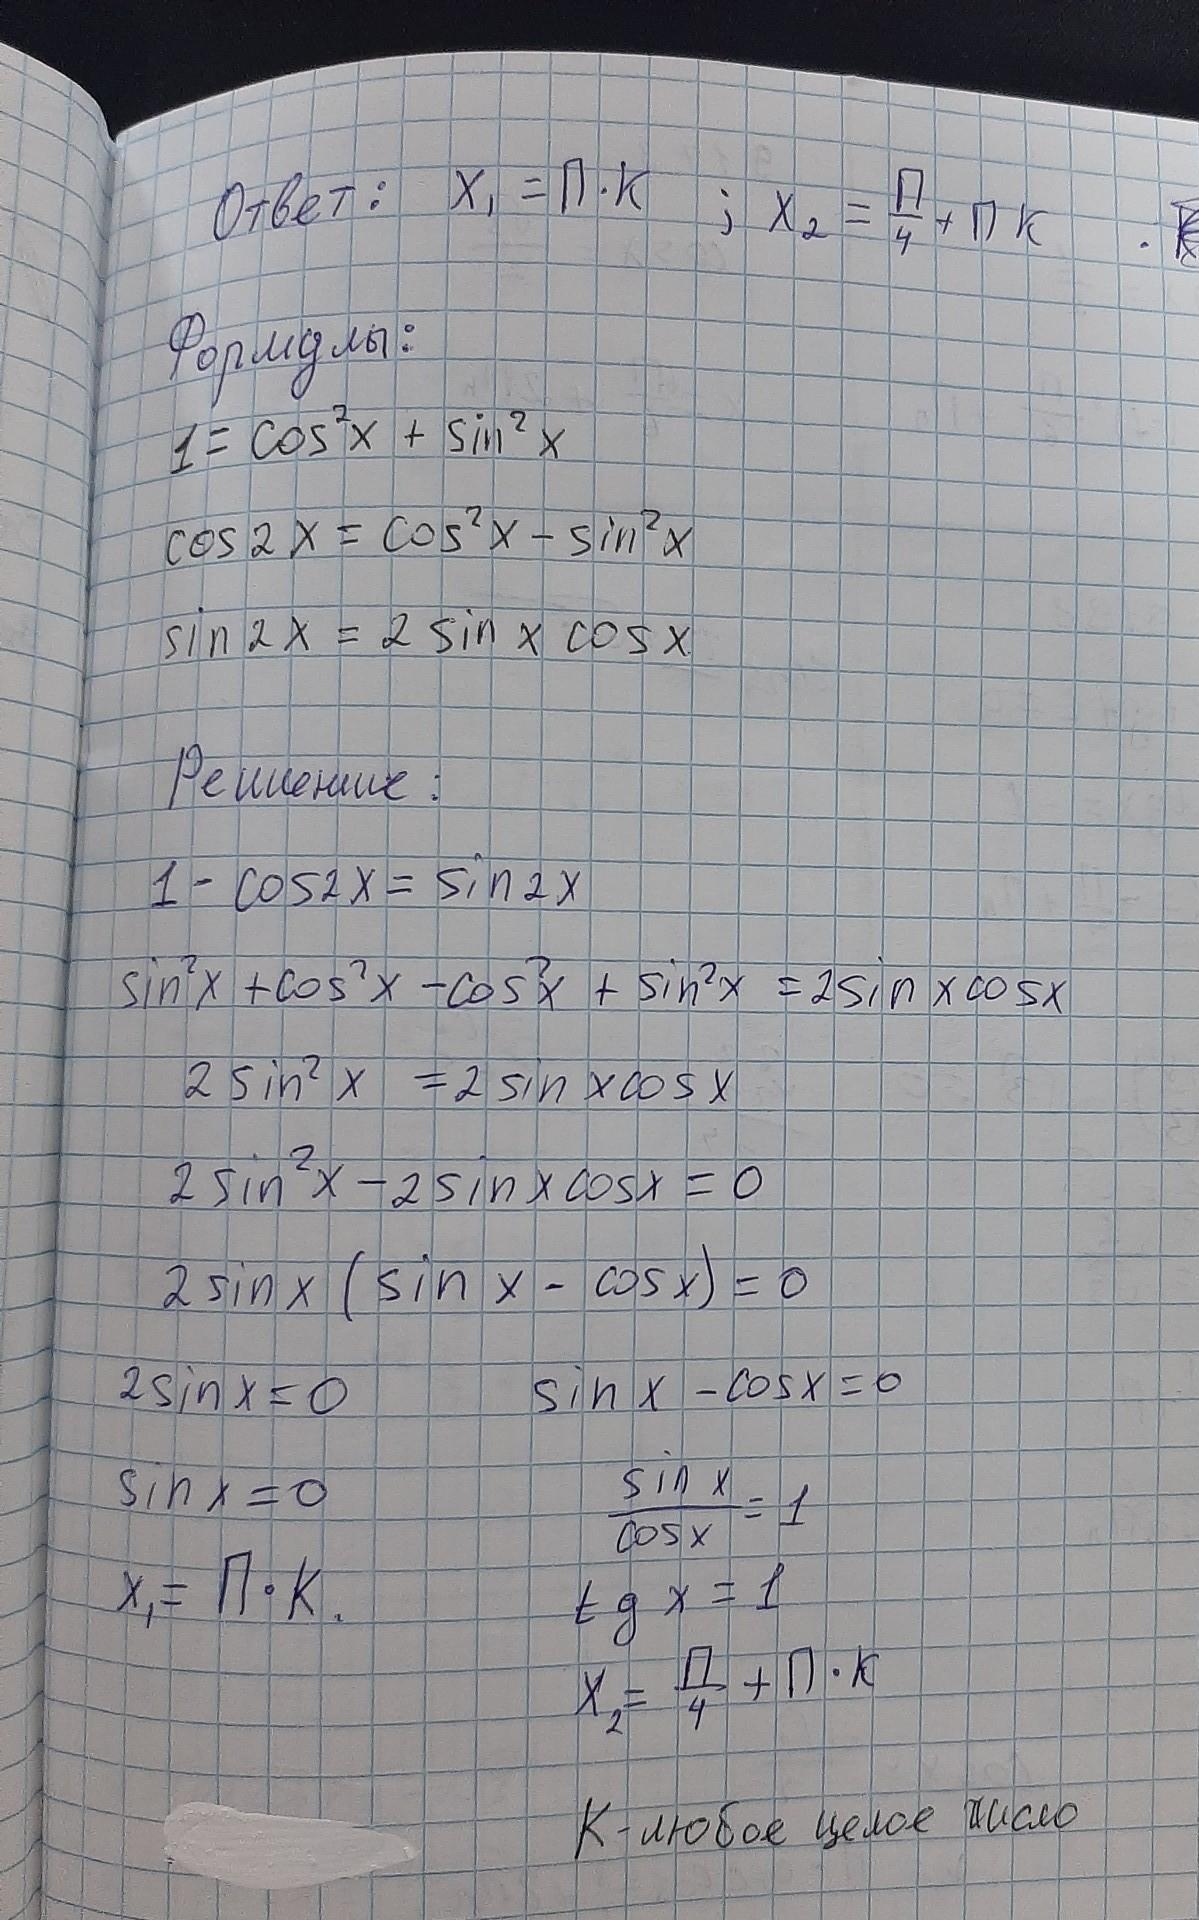 Ответ: x₁ = П·К ; x₂ = П/4 + П К .
Формулы:
1 = cos²x + sin²x
cos2x = cos²x - sin²x
sin2x = 2 sin x cos x
Решение:
1 - cos2x = sin2x
sin²x + cos²x - cos²x + sin²x = 2sin x cosx
2 sin²x = 2 sin x cosx
2 sin²x - 2 sin x cosx = 0
2 sin x (sin x - cosx) = 0
2sin x = 0 sin x - cosx = 0
sin x = 0 sin x / cosx = 1
x₁ = П·К. tg x = 1
x₂ = П/4 + П·К
К - любое целое число